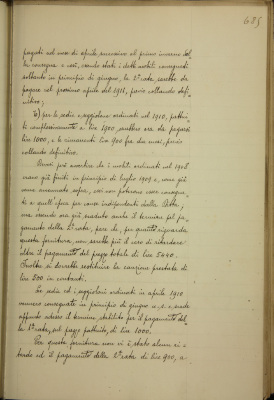 685
pagati nel mese di aprile successivo al primo inverno dal-
la consegna e così, essendo stati i detti mobili consegnati
soltanto in principio di giugno, la 2ª rata sarebbe da
pagare nel prossimo aprile del 1911, previo collaudo defi-
nitivo;
b) per le sedie e seggioloni ordinati nel 1910, pattui-
ti complessivamente a lire 1900, sarebbero ora da pagarsi
lire 1000, e le rimanenti lire 900 fra due mesi, previo
collaudo definitivo.
Devesi però avvertire che i mobili ordinati nel 1908
erano già finiti in principio di luglio 1909 e, come già
venne accennato sopra, essi non poterono essere consegna-
ti a quell'epoca per cause indipendenti dalla Ditta;
ma essendo ora già scaduto anche il termine pel pa-
gamento della 2ª rata, pare che, per quanto riguarda
questa fornitura, non sarebbe più il caso di ritardare
oltre il pagamento del prezzo totale di lire 5440.
Inoltre si dovrebbe restituire la cauzione prestata di
lire 200 in contanti.
Le sedie ed i seggioloni ordinati in aprile 1910
vennero consegnati in principio di giugno u. s. e scade
appunto adesso il termine stabilito per il pagamento del-
la 1ª rata, sul prezzo pattuito, di lire 1000.
Per questa fornitura non vi è stato alcun ri-
tardo ed il pagamento della 2ª rata di lire 900, a